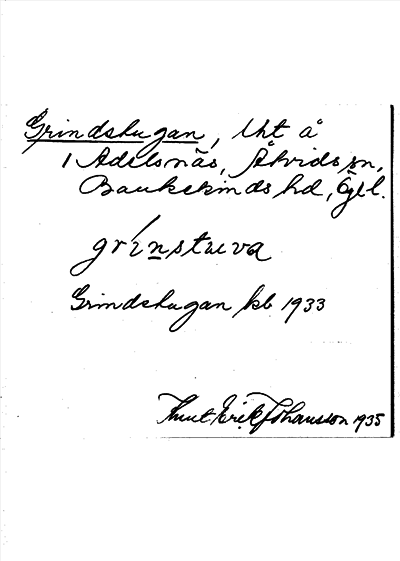 Grindstugan, lht å
1 Adelsnäs, Åtvids sn,
Bankekinds hd, Ögl.
grínstuva
Grindstugan kb 1933
Knut Erik Johansson 1935